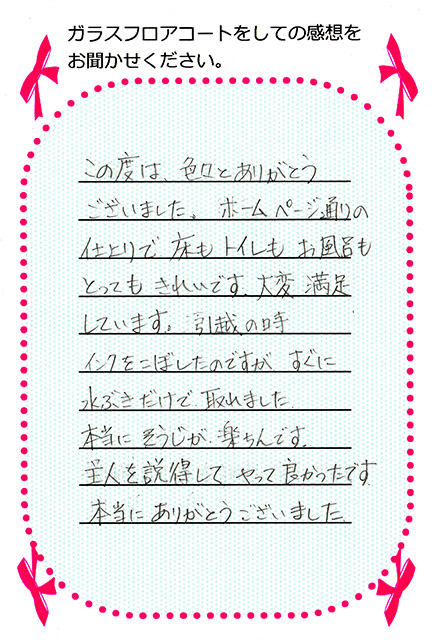 ガラスフロアコートをしての感想を
お聞かせください。
この度は、色々とありがとう
ございました。ホームページ通りの
仕上りで床もトイレもお風呂も
とってもきれいです。大変満足
しています。引越の時
インクをこぼしたのですがすぐに
水ぶきだけで取れました
本当にそうじが楽ちんです。
主人を説得してやって良かったです
本当にありがとうございました。